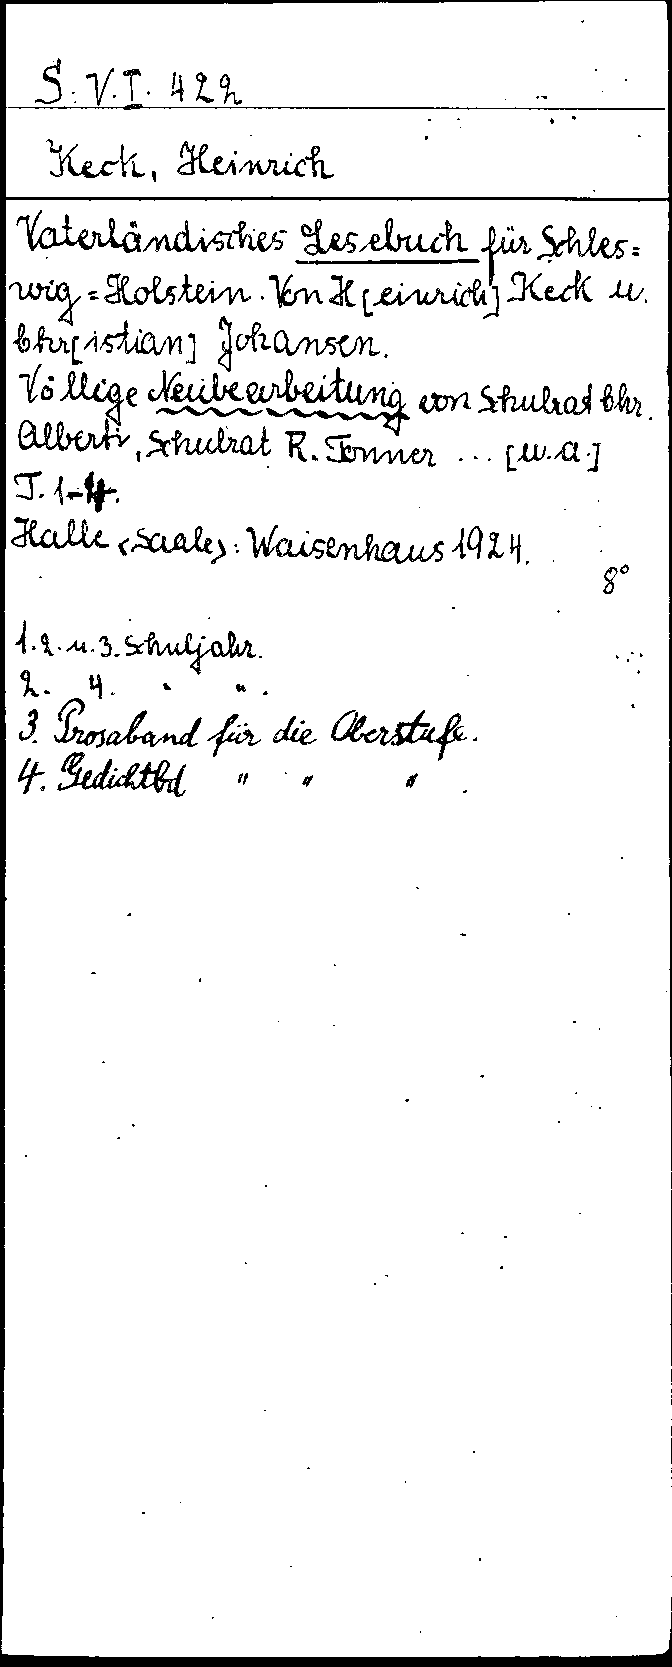 S. V. I. 422
Keck, Heinrich
Vaterländisches Lesebuch für Schles=
wig=Holstein. Von H[einrich] Keck u.
Chr[istian] Johansen.
Völlige Neubearbeitung von Schulrat Chr.
Alberti, Schulrat R. Tonner ... [u.a.]
T. 1-4.
Halle <Saale>: Waisenhaus 1924.
8°
1. 2. u. 3. Schuljahr.
2. 4. " " .
3. Prosaband für die Oberstufe.
4. Gedichtbd " " " .